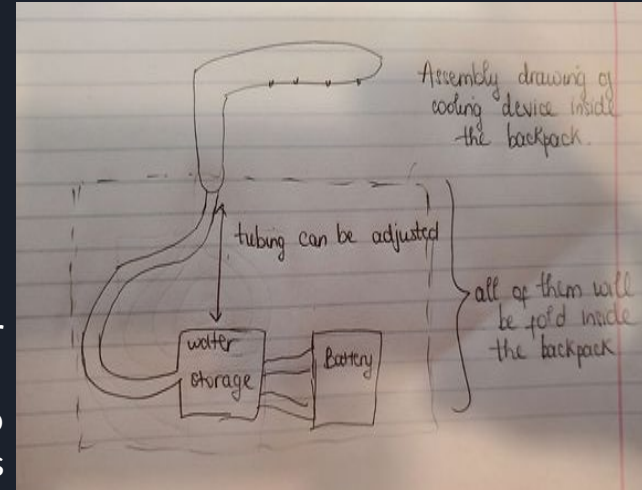 Assembly drawing of
cooling device inside
the backpack.
tubing can be adjusted
all of them will
be fold inside
the backpack
water
storage
Battery